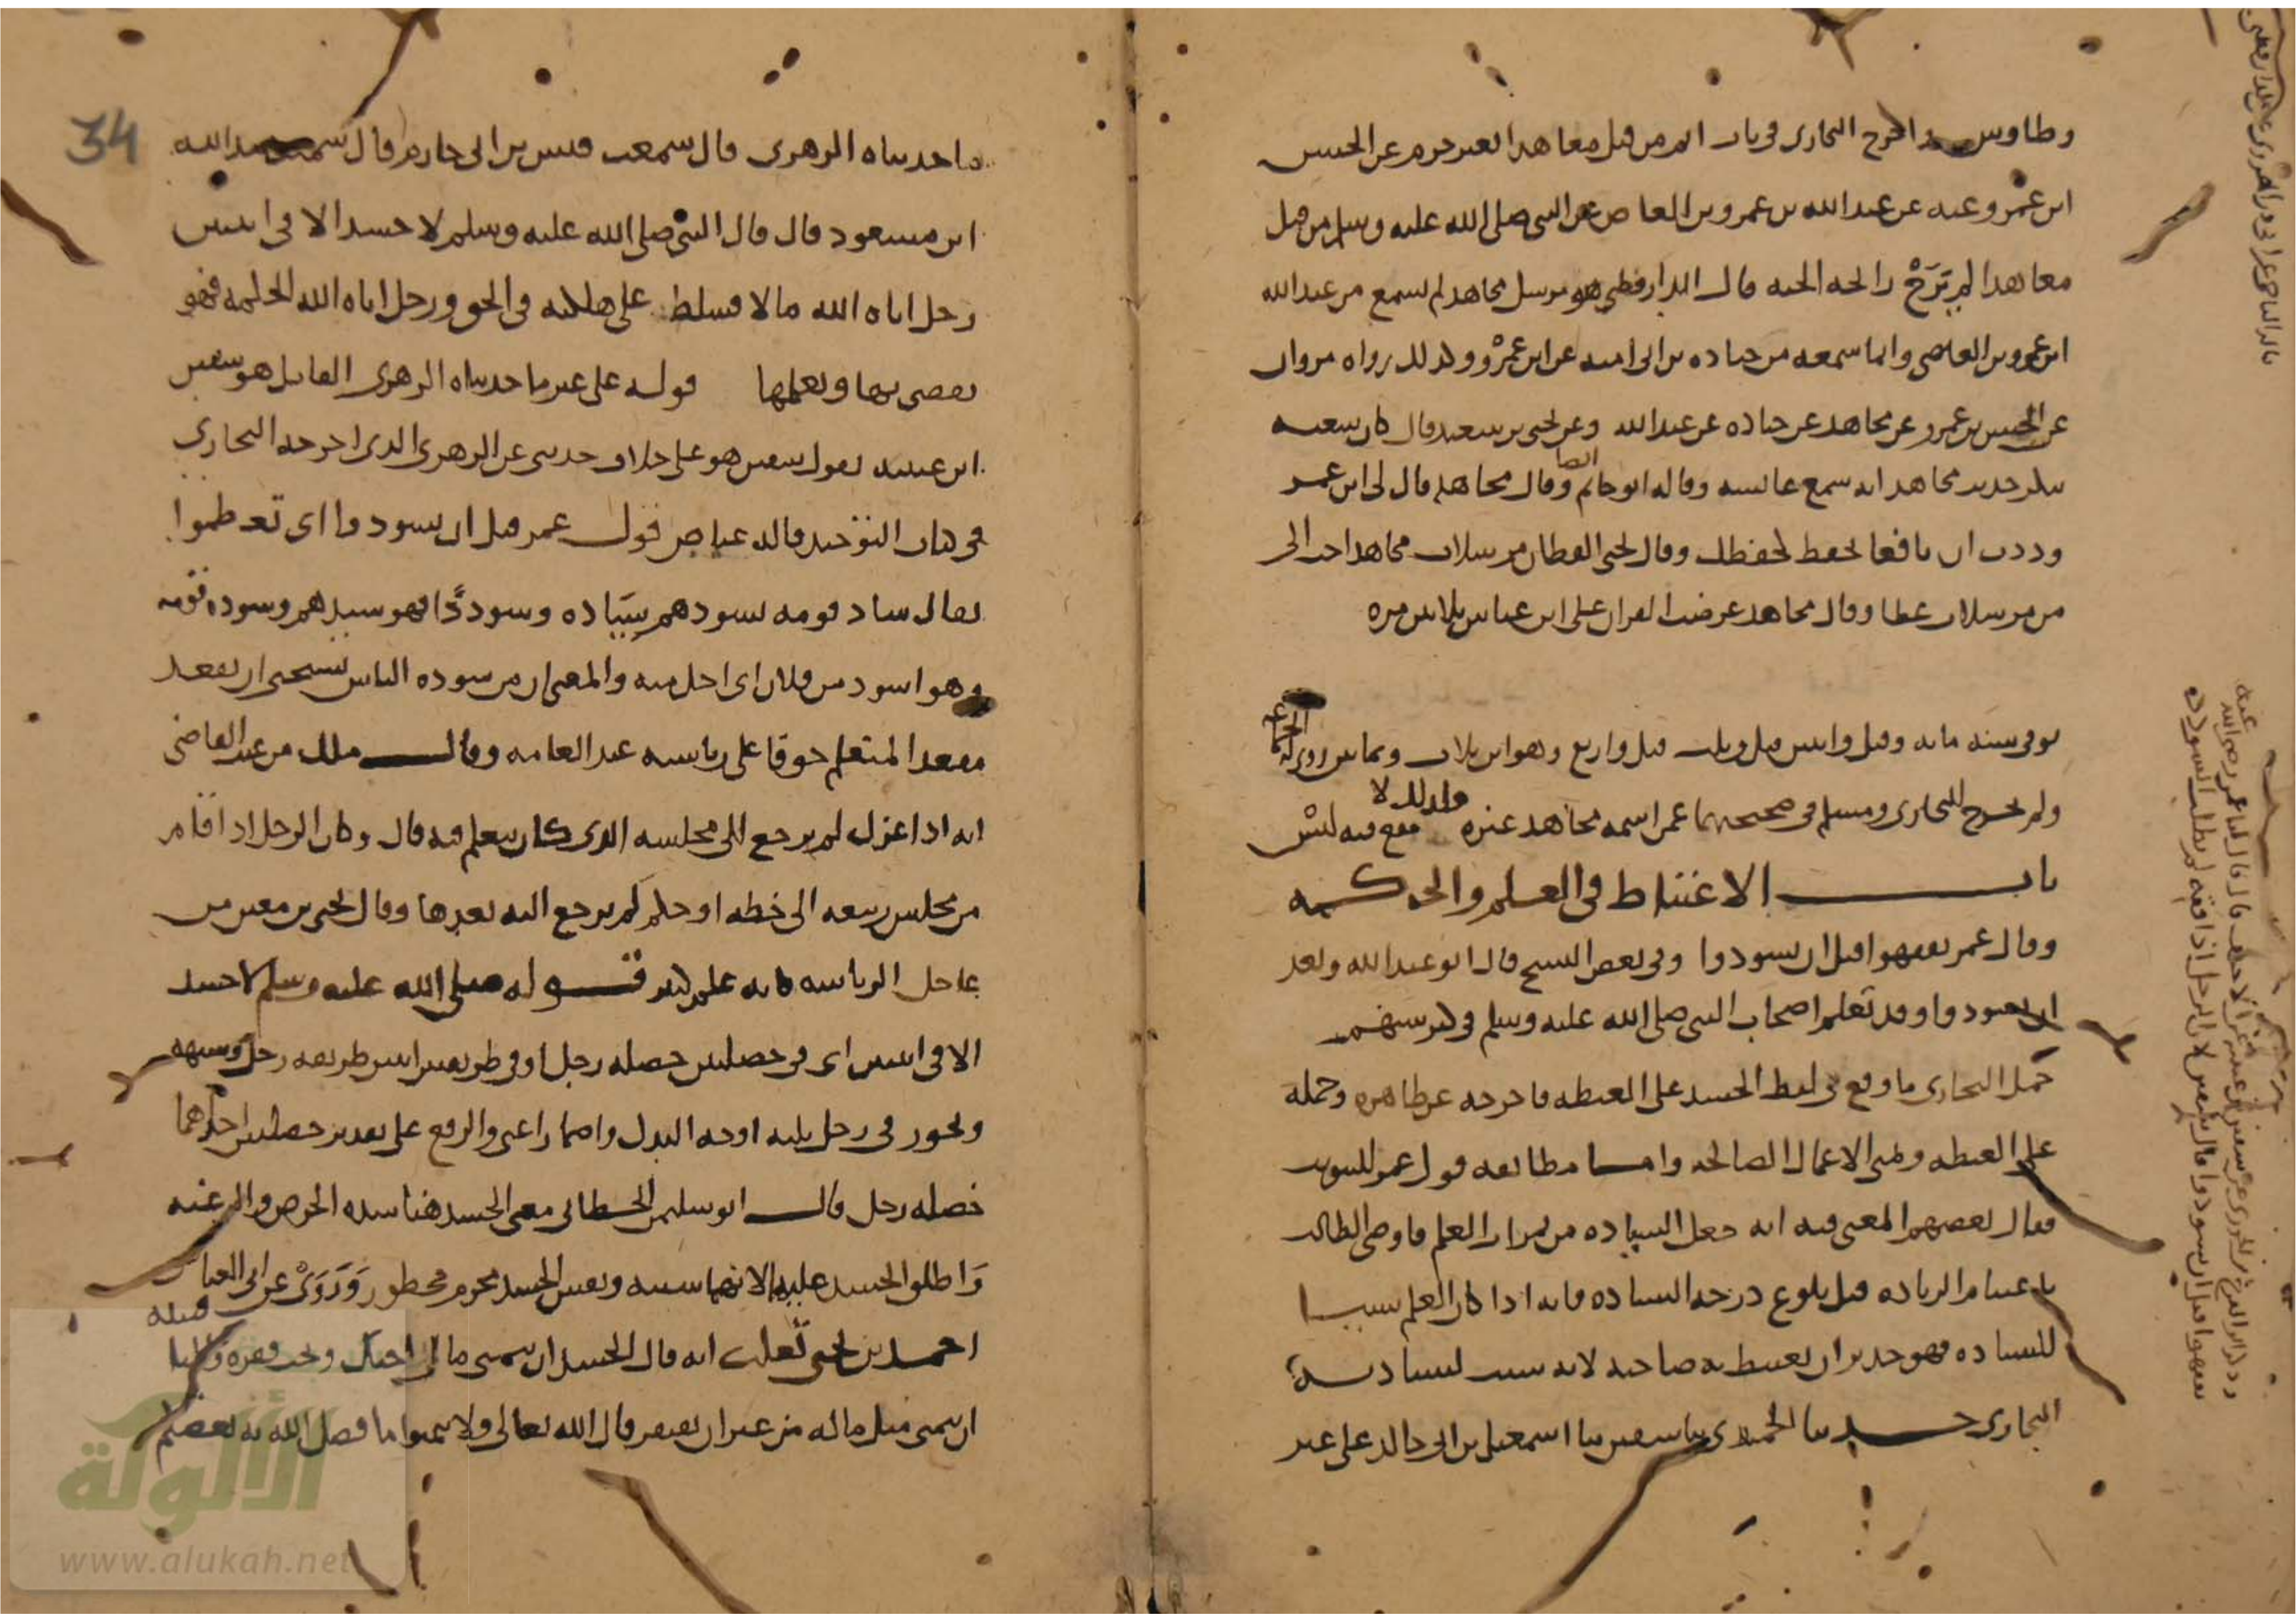 وطاوس واخرج البخاري في باب اثم من قتل معاهدا بغير جرم عن الحسن
ابن عمرو عنه عن عبد الله بن عمرو بن العاص عن النبي صلى الله عليه وسلم من قتل
معاهدا لم يَرَحْ رائحة الجنة قال الدارقطني هو مرسل مجاهد لم يسمع من عبد الله
ابن عمرو بن العاصي وانما سمعه من جناده بن ابي اميه عن ابن عمرو وكذلك رواه مروان
عن الحسن بن عمرو عن مجاهد عن جناده عن عبد الله وعن يحيى بن سعيد قال كان شعبه
ينكر حديث مجاهد انه سمع عائشه وقاله ابو حاتم ايضا وقال مجاهد قال لي ابن عمر
وددت ان نافعا يحفظ كحفظك وقال يحيى القطان مرسلات مجاهد احب الي
من مرسلات عطا وقال مجاهد عرضت القران على ابن عباس ثلاثين مره
توفي سنه مائه وقيل واثنين وقيل وثلث وقيل واربع وهو ابن ثلاث وثمانين روى له الجماعه
ولم يخرج البخاري ومسلم في صحيحيهما عمن اسمه مجاهد غيره ولذلك لا يقع فيه لبس
باب الاغتباط في العلم والحكمه
وقال عمر تفقهوا قبل ان تسودوا وفي بعض النسخ قال ابو عبد الله وبعد
ان تسودوا وقد تعلم اصحاب النبي صلى الله عليه وسلم في كبر سنهم
حمل البخاري ما وقع في لفظ الحسد على الغبطه فاخرجه عن ظاهره وحمله
على الغبطه وتمني الاعمال الصالحه واما مطابقه قول عمر للتبويب
فقال بعضهم المعنى فيه انه جعل السياده من ثمرات العلم فاوصى الطالب
باغتنام الزياده قبل بلوغ درجه السياده فانه اذا كان العلم سببا
للسياده فهو جدير ان يغتبط به صاحبه لانه سبب لسيادته
البخاري حدثنا الحميدي ثنا سفين ثنا اسمعيل بن ابي خالد على غير
34
ما حدثناه الزهري قال سمعت قيس بن ابي حازم قال سمعت عبد الله
ابن مسعود قال قال النبي صلى الله عليه وسلم لا حسد الا في اثنتين
رجل اتاه الله مالا فسلط على هلكته في الحق ورجل اتاه الله الحكمه فهو
يقضي بها ويعلمها قوله على غير ما حدثناه الزهري القائل هو سفين
ابن عيينه يقول سفين هو على خلاف حديثي عن الزهري الذي اخرجه البخاري
في كتاب التوحيد قاله عياض قول عمر قبل ان تسودوا اي تعظموا
يقال ساد قومه يسودهم سيَاده وسوددًا فهو سيدهم وسوده قومه
وهو اسود من فلان اي اجل منه والمعنى ان من سوده الناس يستحيي ان يقعد
مقعد المتعلم خوفا على رياسته عند العامه وقال ملك من عيب القاضي
انه اذا عزل لم يرجع الى مجلسه الذي كان يتعلم فيه قال وكان الرجل اذا قام
من مجلس ربيعه الى خطه او حكم لم يرجع اليه بعدها وقال يحيى بن معين من
عاجل الرياسه فاته علم كثير قوله صلى الله عليه وسلم لا حسد
الا في اثنتين اي في خصلتين خصله رجل او في طريقين اثنتين طريقه رجل وشبهه
ويجوز في رجل ثلثه اوجه البدل واضمار اعني والرفع على تقدير خصلتين احدهما
خصله رجل قال ابو سليمن الخطابي معنى الحسد هنا شده الحرص والرغبه
وَاطلق الحسد عليه لانهما سببه ونفس الحسد محرم محظور وَرَوَى عن ابي العباس
احمد بن يحيى ثعلب انه قال الحسد ان يتمنى مال اخيك ويحب فقره
ان يتمنى مثل ماله من غير ان يفتقر قال الله تعالى ولا تتمنوا ما فضل الله به بعضكم
الألوكة
www.alukah.net